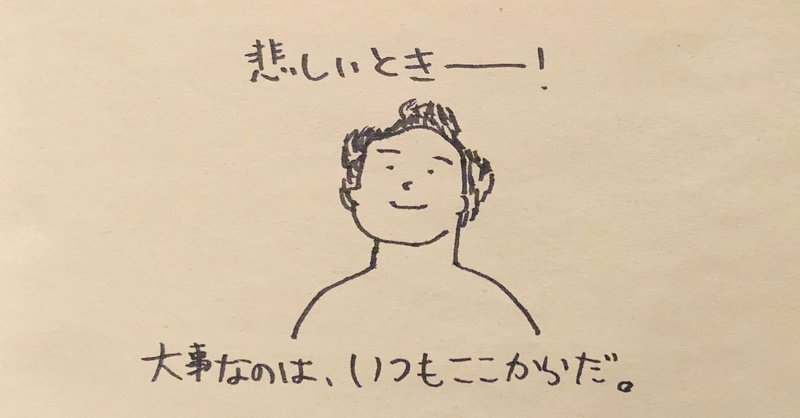 悲しいとき――!
大事なのは、いつもここからだ。